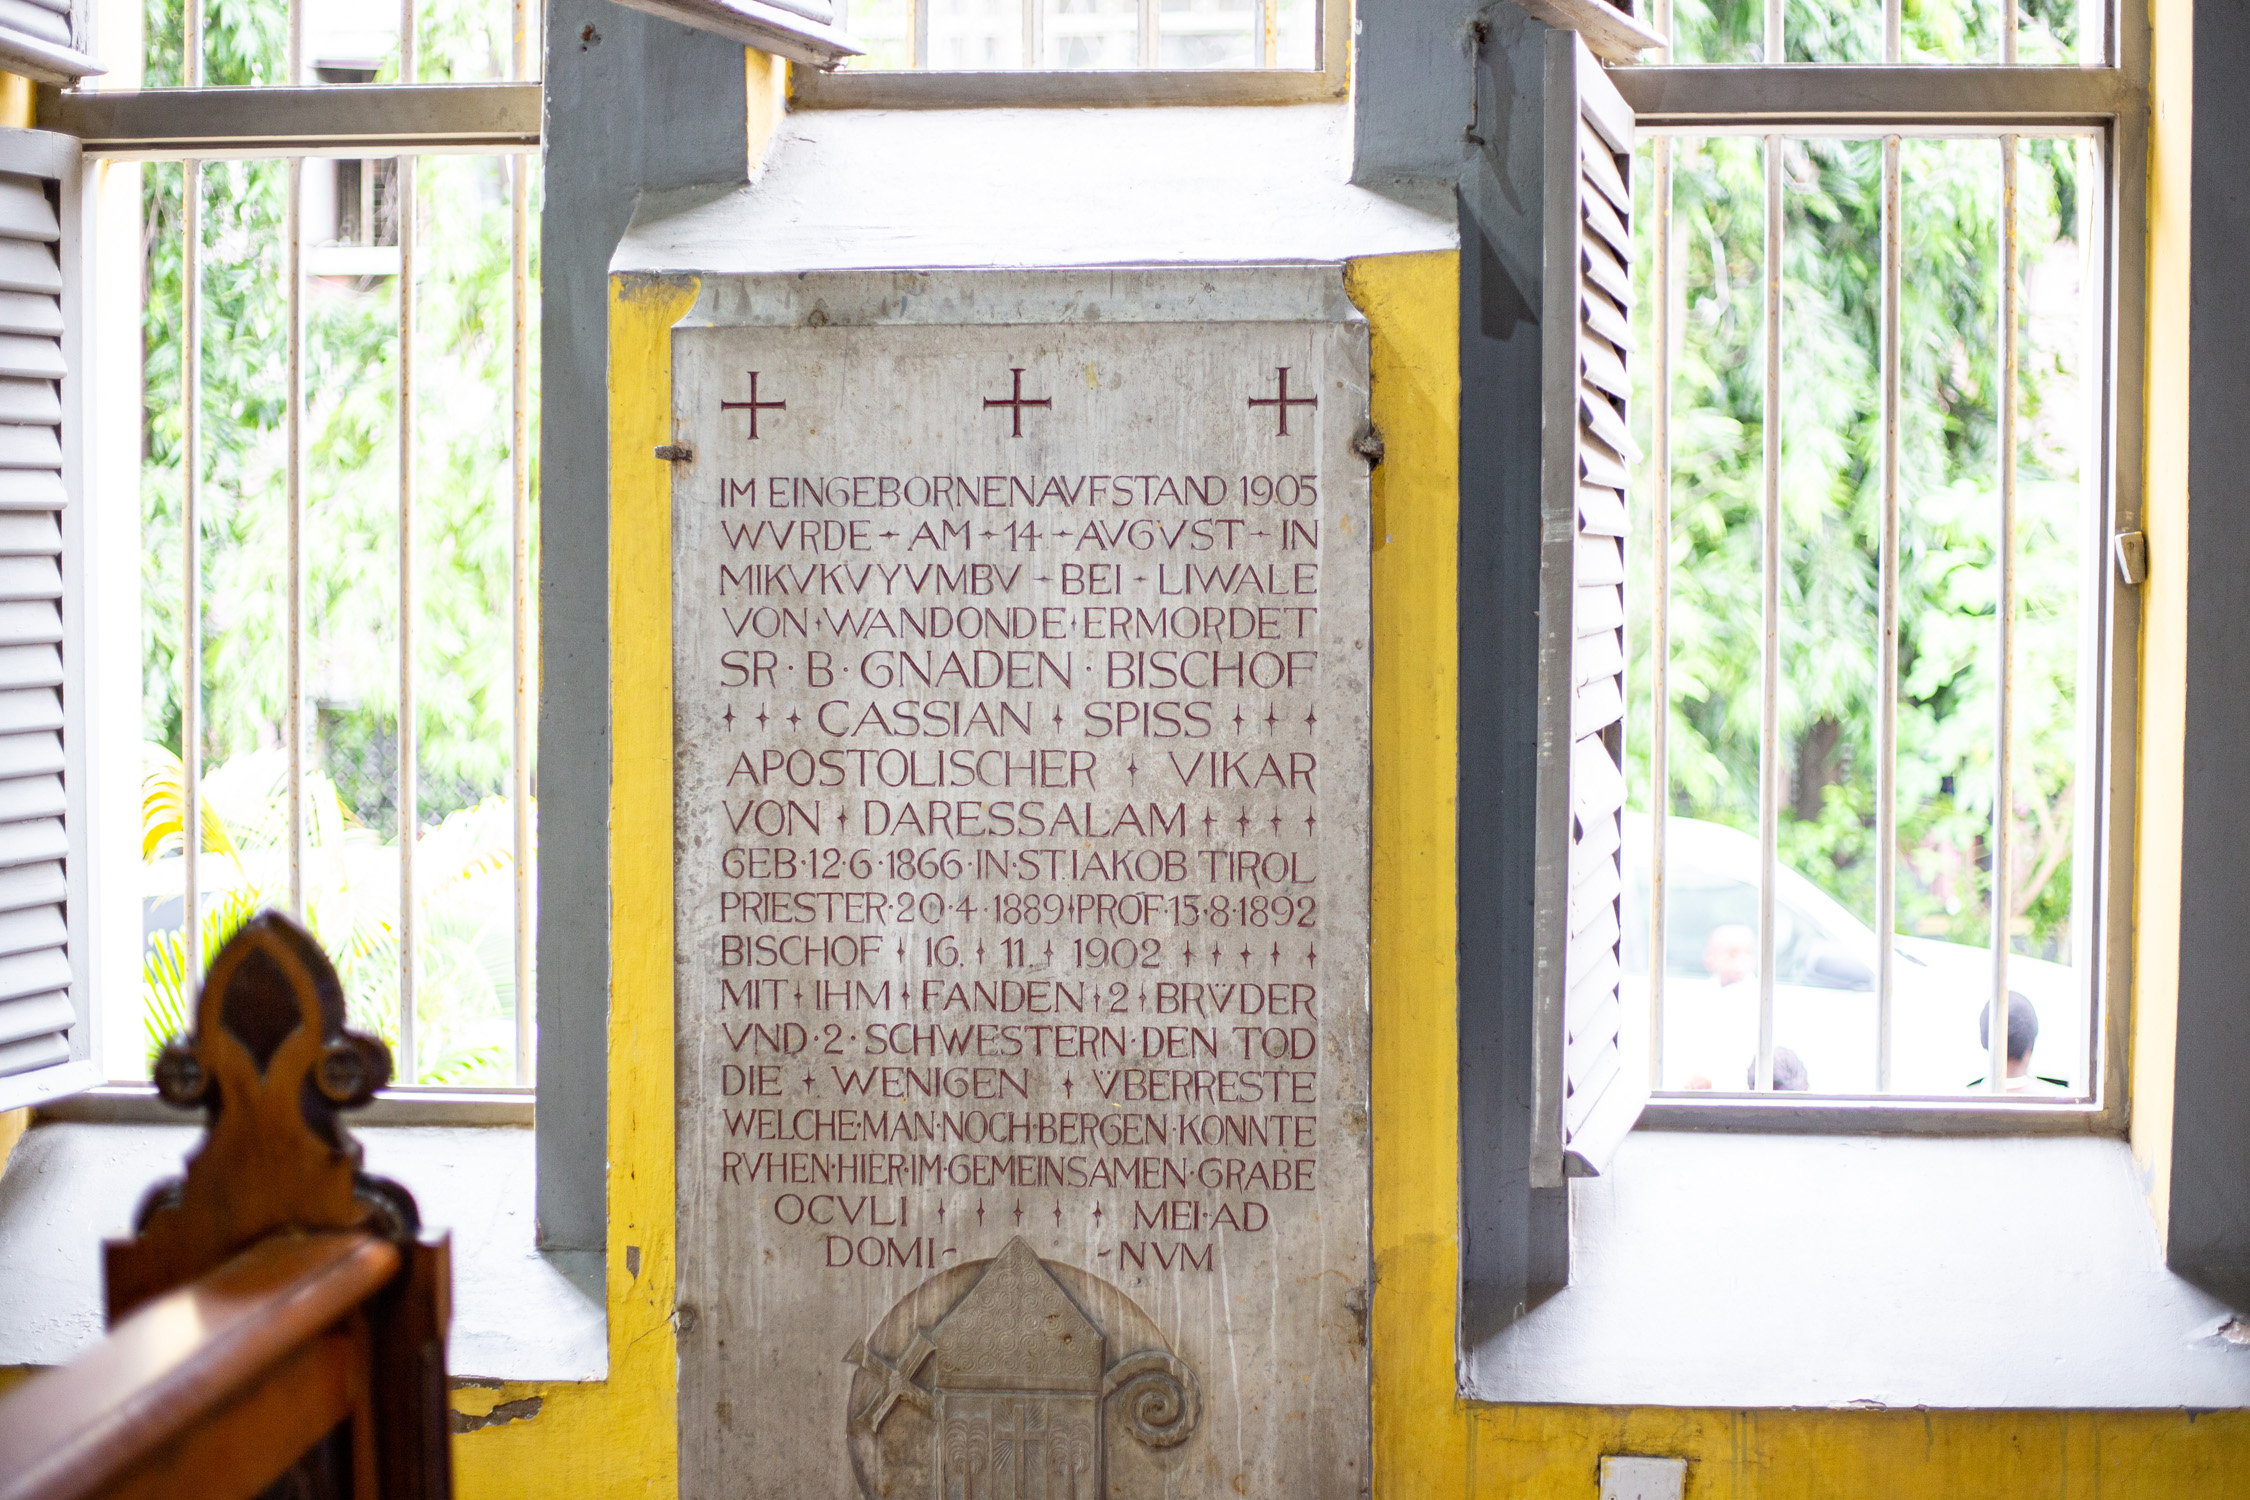 IM EINGEBORNENAVFSTAND 1905
WVRDE + AM + 14 + AVGVST + IN
MIKVKVYVMBV + BEI + LIWALE
VON · WANDONDE · ERMORDET
SR · B · GNADEN · BISCHOF
+ + + CASSIAN + SPISS + + +
APOSTOLISCHER + VIKAR
VON + DARESSALAM + + + +
GEB · 12·6·1866·IN·ST.IAKOB TIROL
PRIESTER·20·4·1889+PROF·15·8·1892
BISCHOF + 16. + 11. + 1902 + + + + +
MIT + IHM + FANDEN + 2 + BRV̈DER
VND · 2 · SCHWESTERN · DEN TOD
DIE + WENIGEN + V̈BERRESTE
WELCHE·MAN·NOCH·BERGEN·KONNTE
RVHEN·HIER·IM·GEMEINSAMEN·GRABE
OCVLI + + + + + MEI·AD
DOMI- -NVM